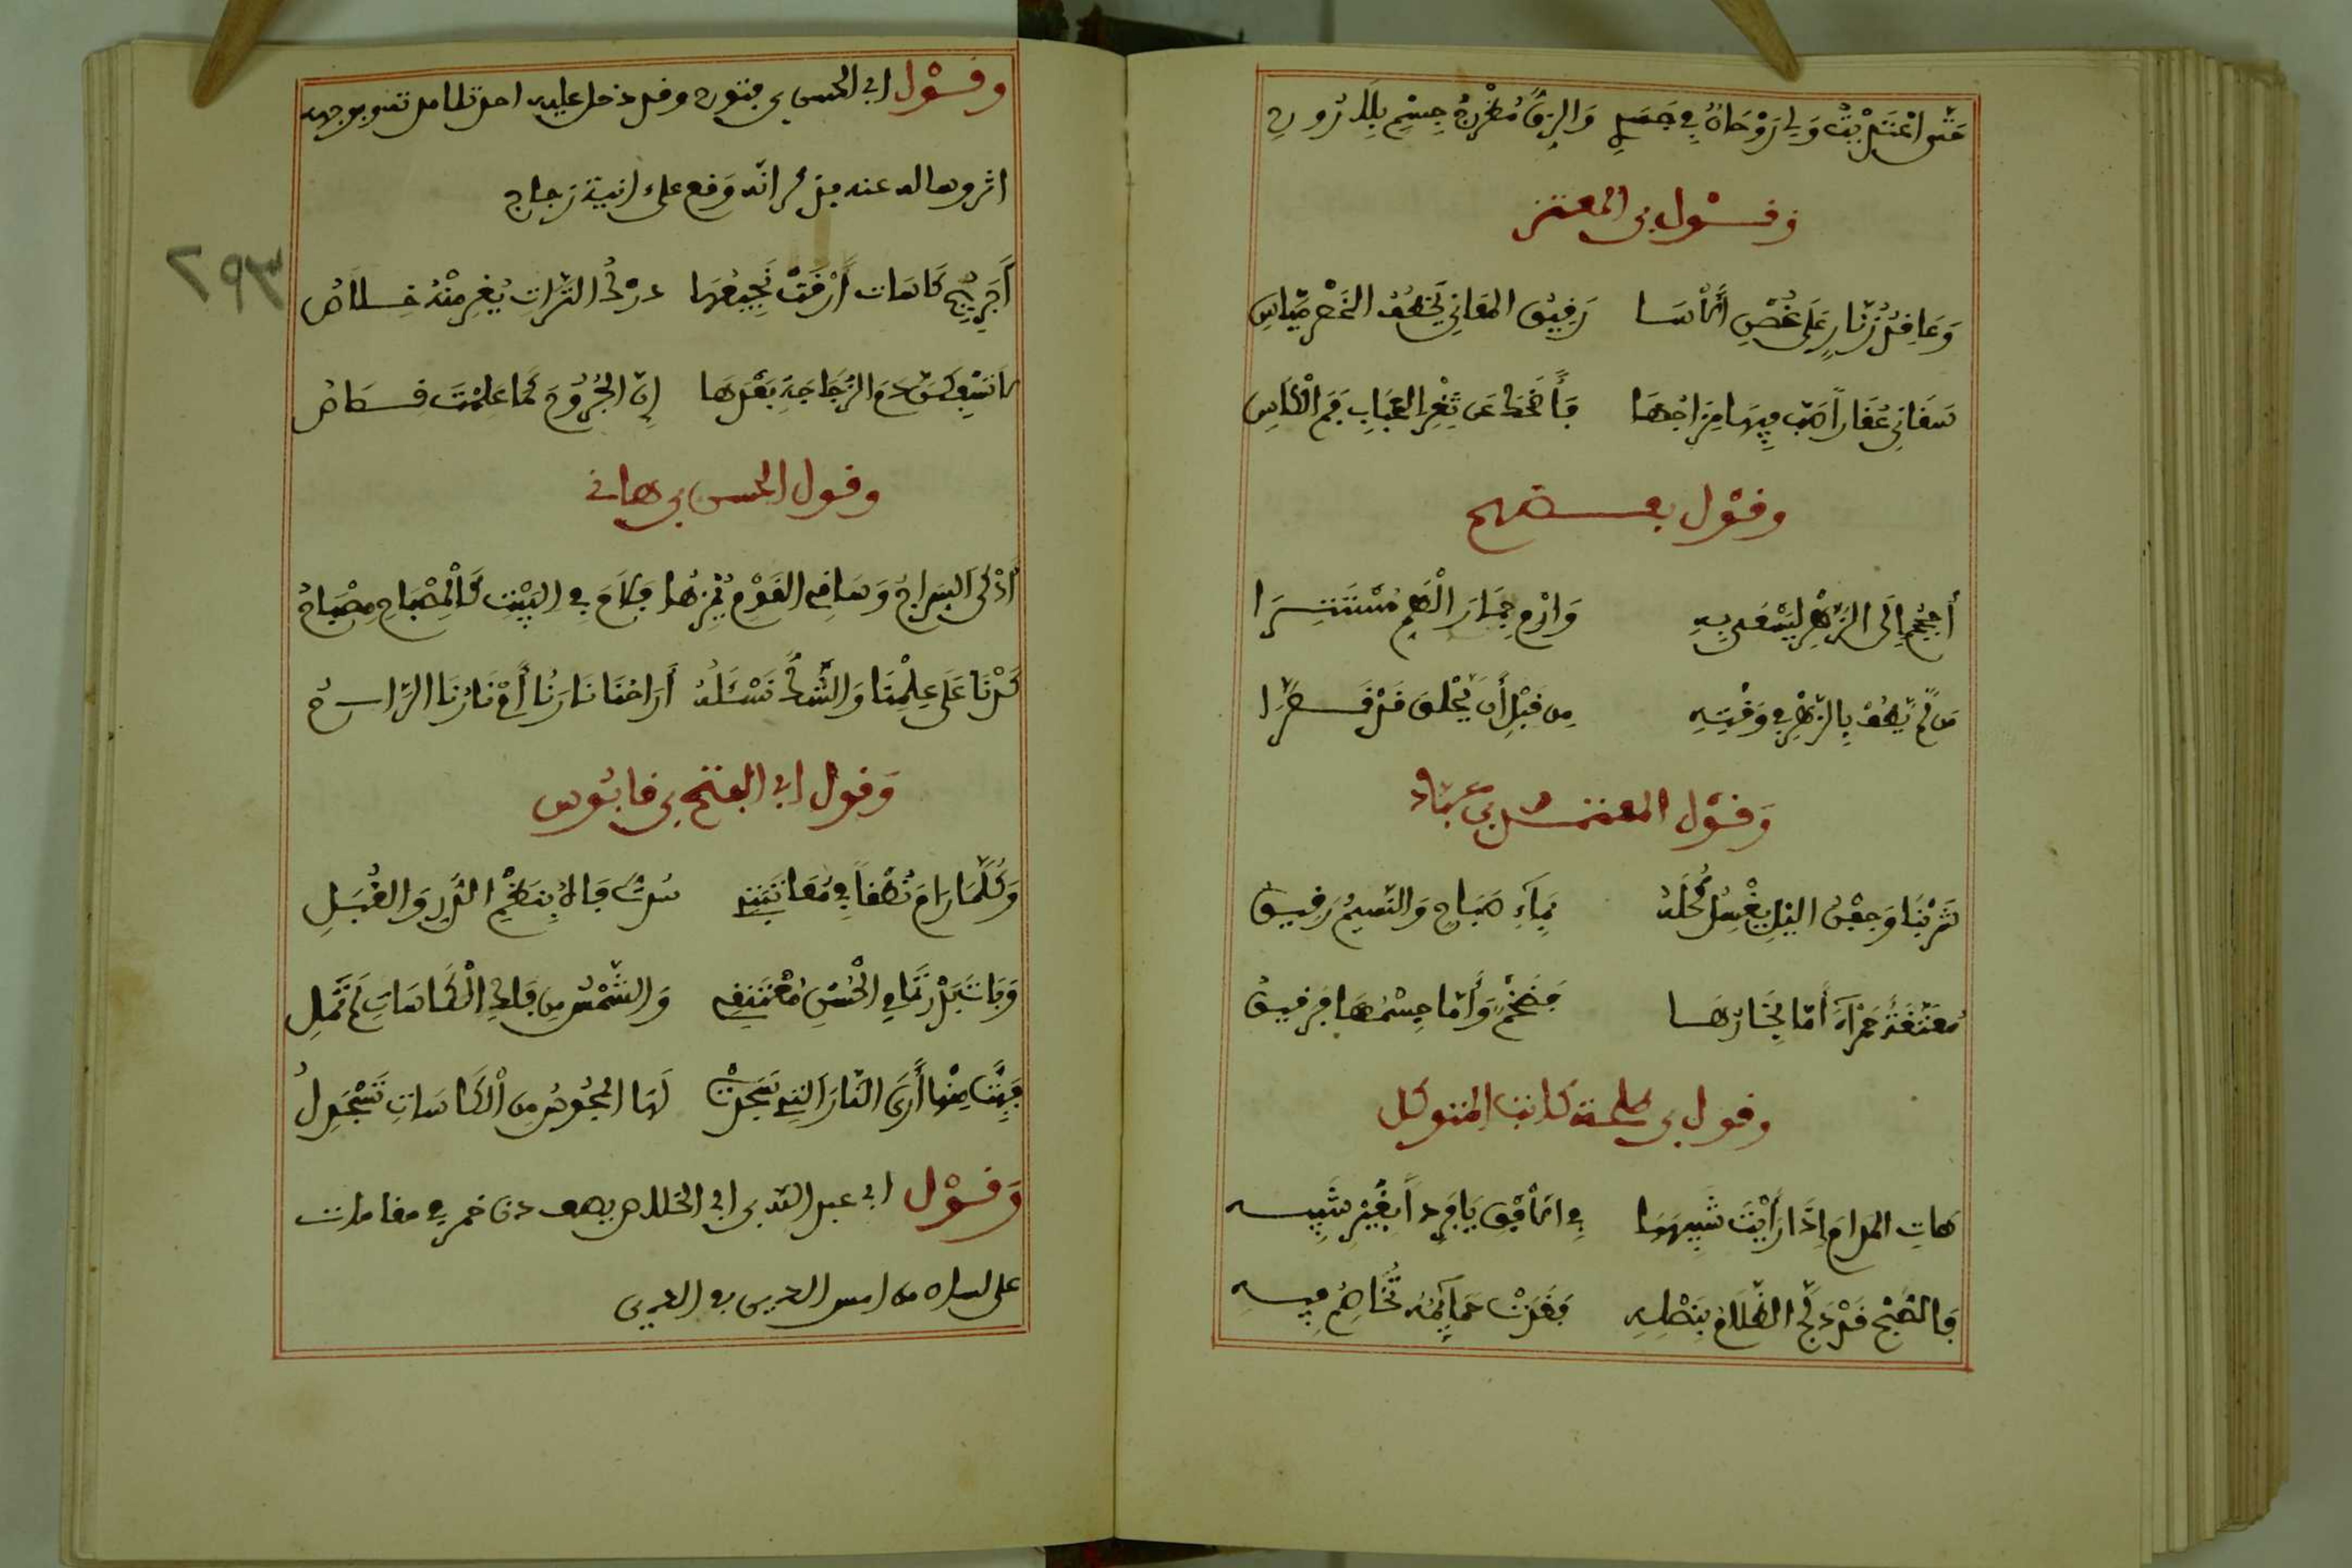 حَتَّى انْثَنَيْتُ وَلِي رُوحَانِ فِي جَسَدٍ وَالزِقُّ مُطَّرَحٌ جِسْمٌ بِلَا رُوحِ
وقول بن المعتز
وَعَاقِدُ زُنَّارٍ عَلَى غُصْنِ الْآسَا رَقِيقُ المَعَانِي مُخْطَفُ الخَصْرِ مَيَّاسِ
سَقَانِي عُقَاراً صَبَّ فِيهَا مِزَاجَهَا فَأَضْحَكَ عَن ثَغْرِ الحَبَابِ فَمَ الْكَاسِ
وقول بعضهم
أُجِيحُ إِلَى الزَّهْرِ لِتَسْعَى بِهِ وَارْمِ جِمَارَ الْهَمِّ مُسْتَنْفِرَا
مَن لَّمْ يَطُفْ بِالزَّهْرِ فِي وَقْتِهِ مِن قَبْلِ أَن يُحْلَقَ قَدْ قَصَّرَا
وَقَوْل المعتمد بن عبّاد
شَرِبْنَا وَجَفْنُ اليْلِ يَغْسِلُ كُحْلَهُ بِمَاءِ صَبَاحٍ وَالنَّسِيمُ رَقِيقُ
مُعَتَّقَةً حَمْرَآءَ أَمَّا بُخَارُهَا فَضَخْمٌ وَأَمَّا جِسْمُهَا فَرَقِيقُ
وقول بن سلمة كاتب المتوكل
هَاتِ المدَامَ إِذَا رَأَيْتَ شَبِيهَهَا فِي الأُفْقِ يَا فَرْداً بِغَيْرِ شَبِيهِ
فَالصُّبْحُ قَدْ ذَبَحَ الظَّلَامَ بِنَصْلِهِ فَغَدَتْ حَمَآئِمُهُ تُخَاصِمُ فِيهِ
وَقَوْل ابي الحسن بن فتوح وقد دخل عليه احد تلامذته وبوجهه
اثر وساله عنه فذكر انّه وَقع على ءانية زجاج
أَجَرِيحَ كَاسَات أَرَقْتَ نَجِيعَهَا دَرْكُ التِّرَاتِ يُعِزُّ مِنْهُ خِلَاصُ
لَا تَسْفِكَنَّ دَمَ الزُّجَاجَةِ بَعْدَهَا إِنَّ الجُرُوحَ كَمَا عَلِمْتَ قِصَاصُ
وقول الحسن بن هانئ
أَذْكَى السِرَاجَ وَسَاقِي القَوْمِ يُمْزِجُهَا فَلَاحَ فِي البَيْتِ كَالْمِصْبَاحِ مِصْبَاحُ
كِدْنَا عَلَى عِلْمِنَا وَالشَّكُّ نَسْئَلُهُ أَرَاحُنَا نَارُنَا أَمْ نَارُنَا الرَّاحُ
وَقول ابي الفتح بن قابوس
وَكُلَّمَا رَامَ نُطْقاً فِي مُعَاتَبَتِي سَدَدْتُ فَاهُ بِنَظْمِ الدُّرِّ وَالقُبَلِ
وَبَاتَ بَدْرُ تَمَامِ الْحُسْنِ مُعْتَنِقِي وَالشَّمْسُ مِن فَلَكِ الْكَاسَاتِ لَمْ تَمِلِ
فَبِتُّ مِنْهَا أَرَى النَّارَ التِي سَجَدَتْ لَهَا المجُوسُ مِن الْكَاسَاتِ تَسْجُدُ لِي
وَقَوْل ابي عبد الله بن ابي الخصال يصف دن خمر في مقامات
على لسان من امس الدين بو الدين